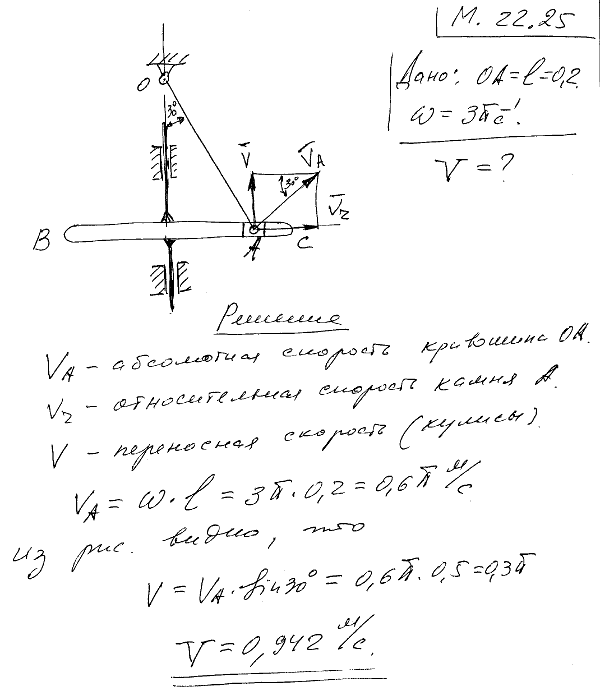 М. 22.25
Дано: OA = l = 0,2.
ω = 3π c⁻¹.
V = ?
O
30°
V V_A
30°
V_r
B A C
Решение
V_A – абсолютная скорость кривошипа OA.
V_r – относительная скорость камня A.
V – переносная скорость (кулисы).
V_A = ω·l = 3π·0,2 = 0,6π м/с
из рис. видно, что
V = V_A·sin30° = 0,6π·0,5=0,3π
V = 0,942 м/с.